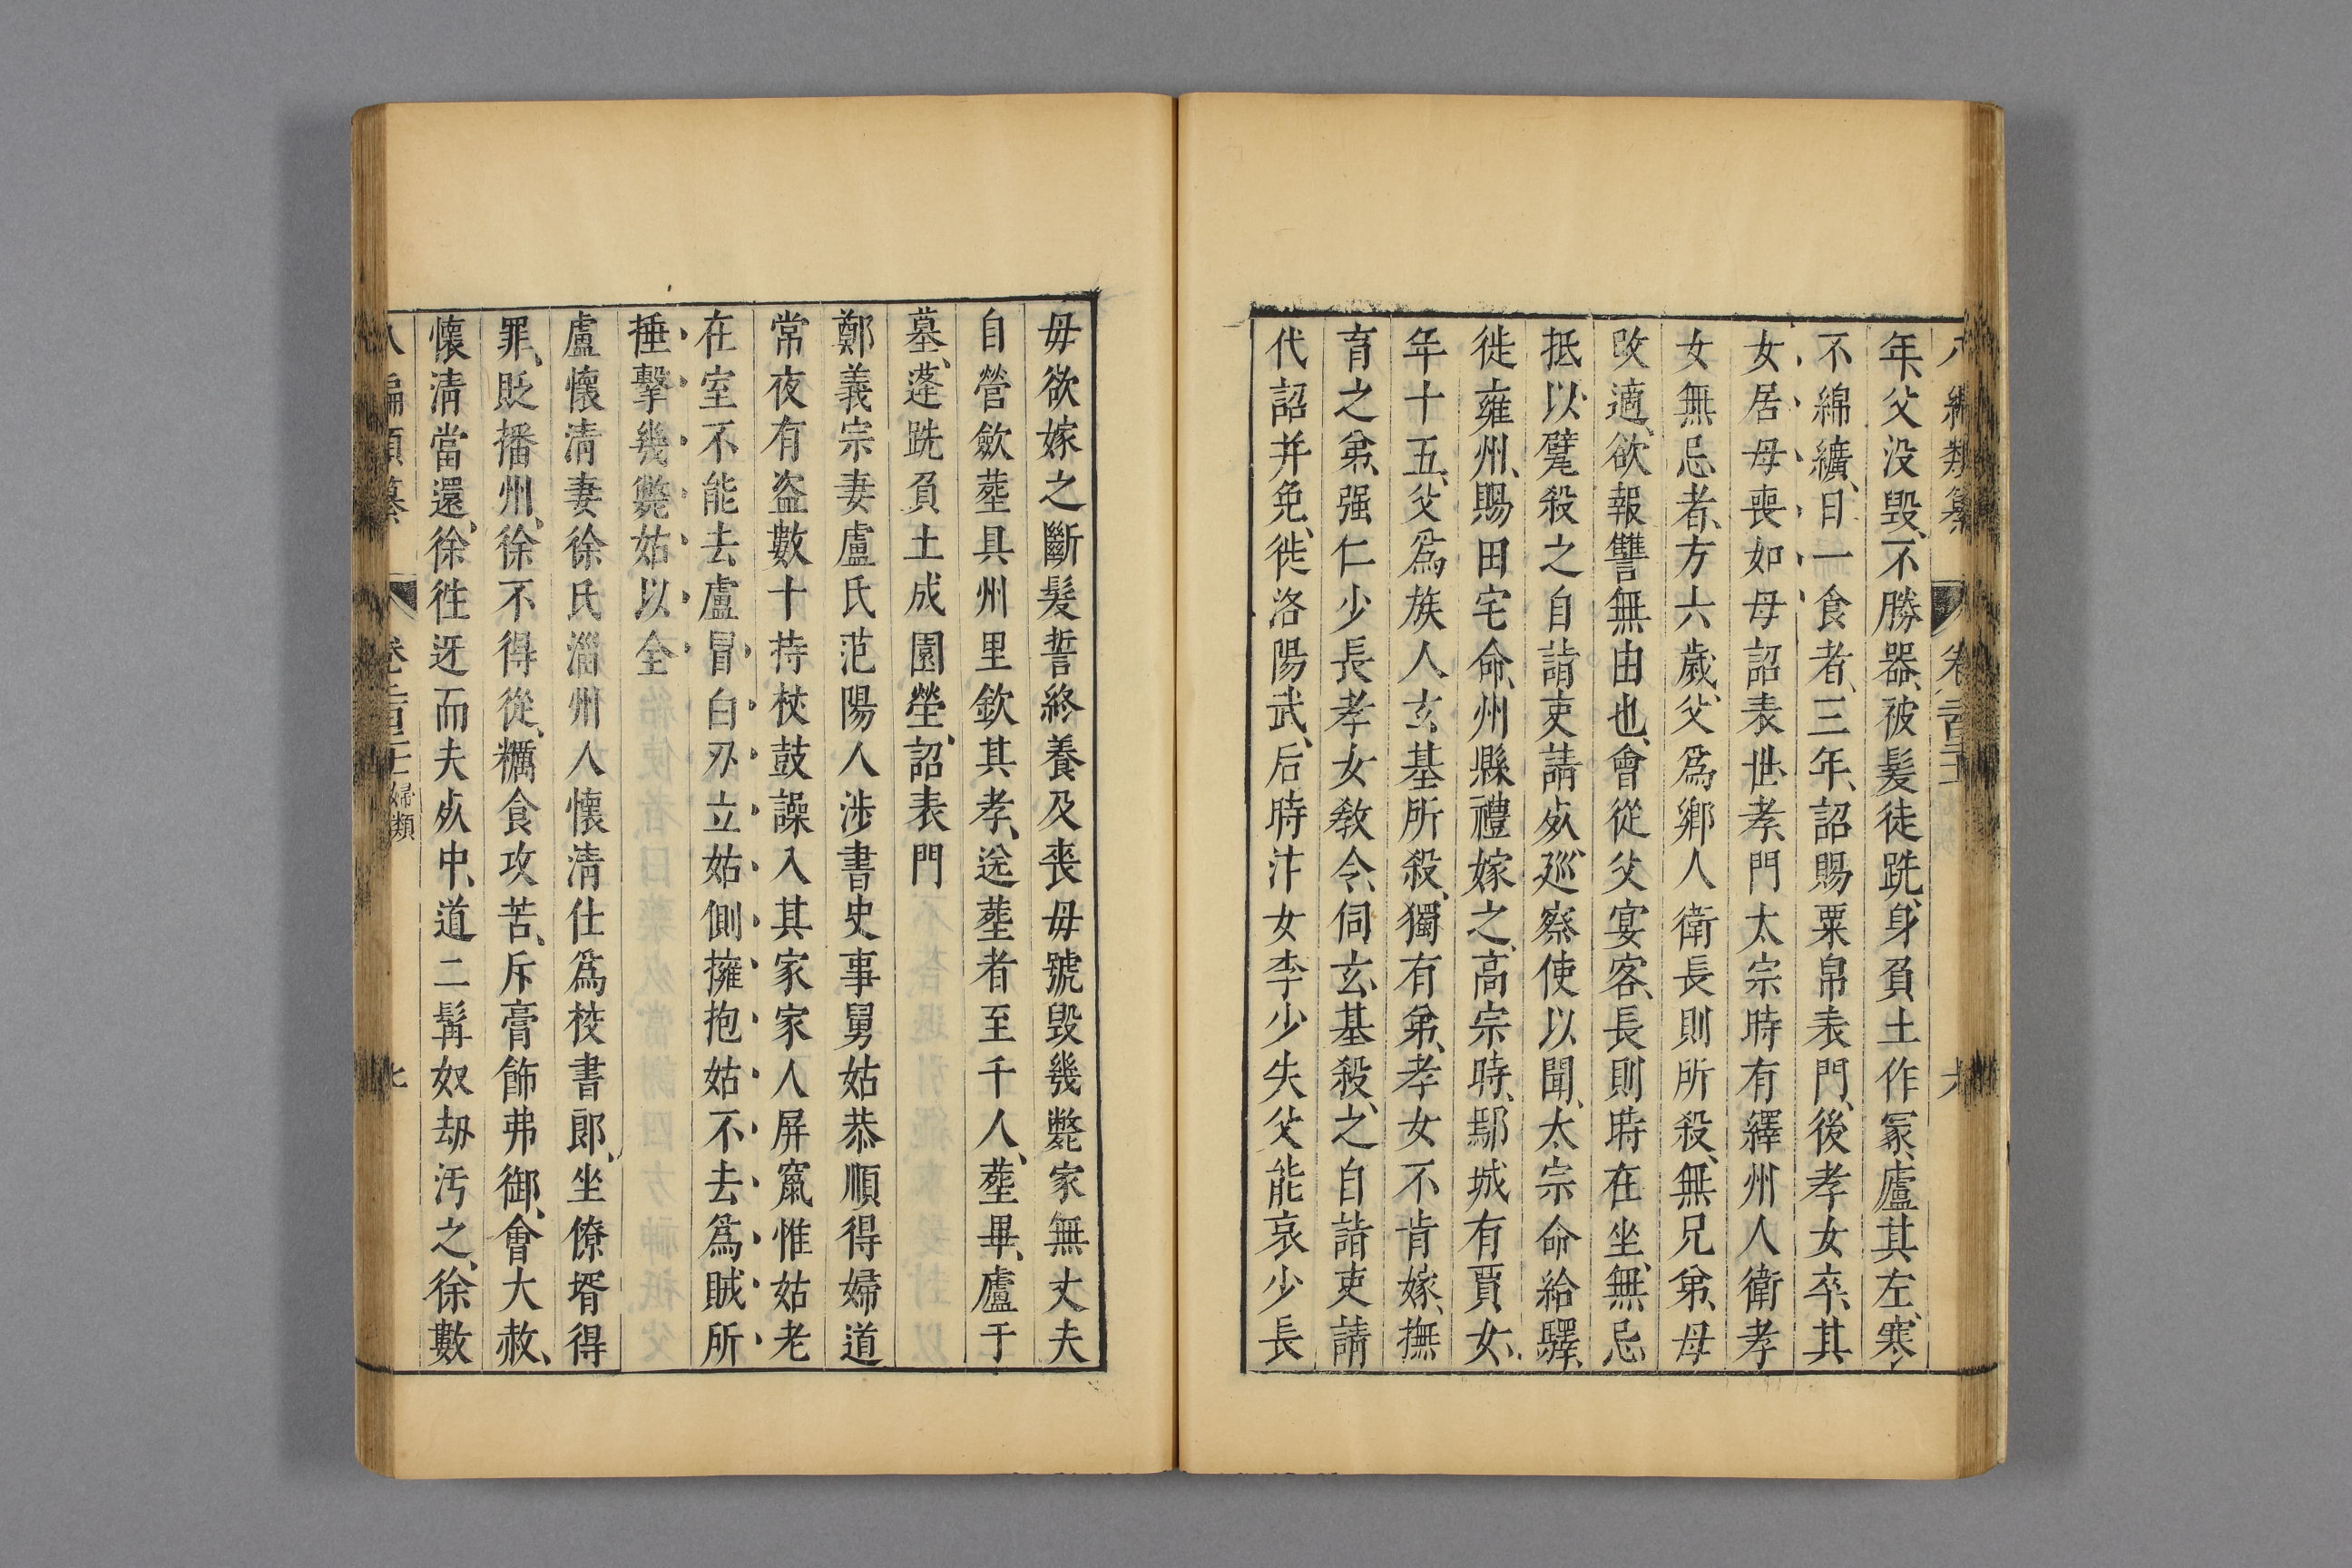 年、父没毁、不勝器、被髮徒跣、身負土作冢、廬其左、寒
不綿纊、日一食者、三年、詔賜粟帛表門、後孝女卒、其
女居母喪如母詔表世孝門太宗時有繹州人衛孝
女無忌者、方六歲、父爲鄉人衛長則所殺、無兄弟、母
改適、欲報讐無由也、會從父宴客、長則時在坐、無忌
抵以甓殺之自詣吏請死、巡察使以聞、太宗命給驛、
徙雍州、賜田宅命、州縣禮嫁之、高宗時、鄢城有賈女、
年十五、父爲族人玄基所殺、獨有弟、孝女不肯嫁、撫
育之弟、强仁少長孝女敎令、伺玄基殺、之自詣吏請
代詔并免、徙洛陽武、后時汴女李少失父能哀少長
母欲嫁之斷髮誓終養及喪母號毁幾斃家無丈夫
自營斂塟具州里欽其孝、送塟者至千人、塟畢、廬于
墓、蓬跣負土成園塋、詔表門
鄭義宗妻盧氏范陽人涉書史事舅姑恭順得婦道
常夜有盗數十持杖鼓譟入其家家人屏竄惟姑老
在室不能去盧冒白刃立姑側擁抱姑不去爲賊所
捶擊幾斃姑以全
盧懷清妻徐氏淄州人懷清仕爲校書郎、坐僚壻得
罪、貶播州、徐不得從、糲食攻苦、斥膏飾弗御、會大赦、
懷清當還、徐徃迓而夫死中、道二髯奴劫汚之、徐數
編類纂 卷 婦類